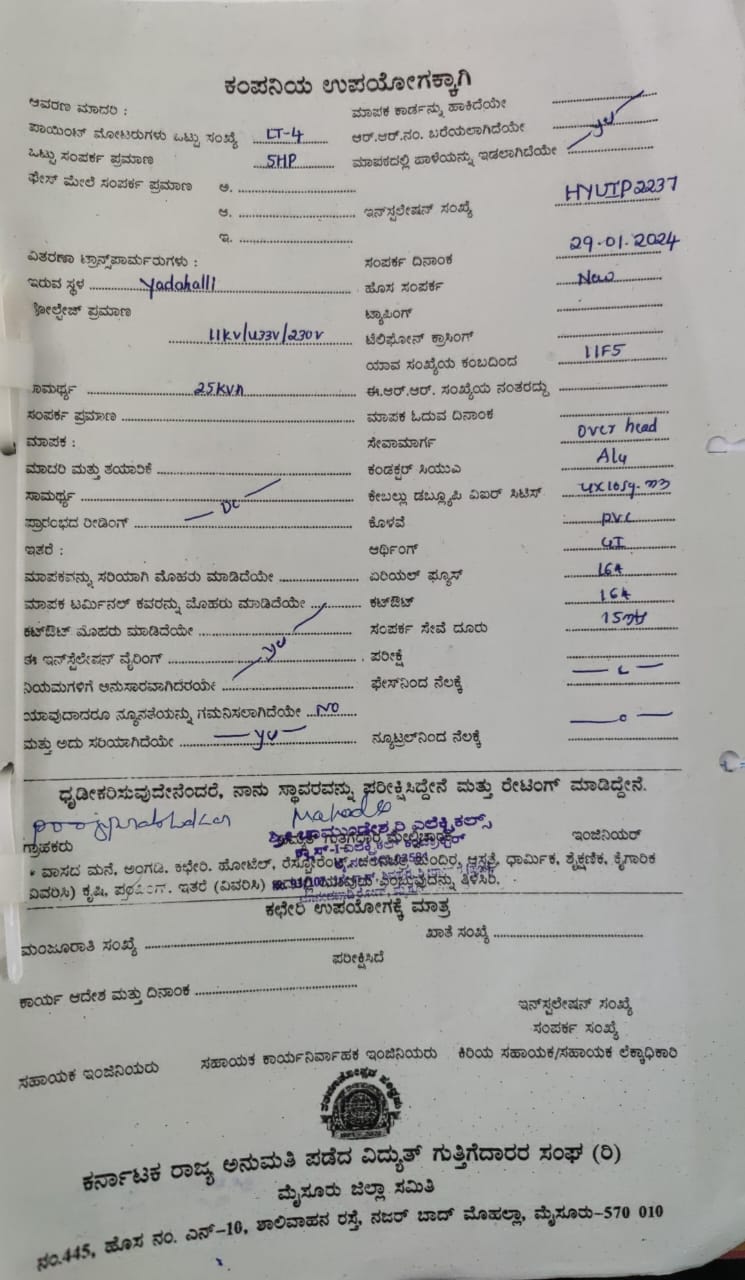 ಕಂಪನಿಯ ಉಪಯೋಗಕ್ಕಾಗಿ
ಆವರಣ ಮಾದರಿ : ಮಾಪಕ ಕಾರ್ಡನ್ನು ಹಾಕಿದೆಯೇ
ಪಾಯಿಂಟ್ ಮೋಟರುಗಳು ಒಟ್ಟು ಸಂಖ್ಯೆ LT-4 ಆರ್.ಆರ್.ನಂ. ಬರೆಯಲಾಗಿದೆಯೇ
ಒಟ್ಟು ಸಂಪರ್ಕ ಪ್ರಮಾಣ 5HP ಮಾಪಕದಲ್ಲಿ ಹಾಳೆಯನ್ನು ಇಡಲಾಗಿದೆಯೇ
ಫೇಸ್ ಮೇಲೆ ಸಂಪರ್ಕ ಪ್ರಮಾಣ ಅ.
ಆ. ಇನ್‌ಸ್ಟಲೇಷನ್ ಸಂಖ್ಯೆ HYUIP2237
ಇ.
ವಿತರಣಾ ಟ್ರಾನ್ಸ್‌ಪಾರ್ಮರುಗಳು : ಸಂಪರ್ಕ ದಿನಾಂಕ 29.01.2024
ಇರುವ ಸ್ಥಳ Yadahalli ಹೊಸ ಸಂಪರ್ಕ New
ವೋಲ್ಟೇಜ್ ಪ್ರಮಾಣ ಟ್ಯಾಪಿಂಗ್
11KV/433V/230V ಟೆಲಿಫೋನ್ ಕ್ರಾಸಿಂಗ್
ಯಾವ ಸಂಖ್ಯೆಯ ಕಂಬದಿಂದ 11F5
ಸಾಮರ್ಥ್ಯ 25KVA ಈ.ಆರ್.ಆರ್. ಸಂಖ್ಯೆಯ ನಂತರದ್ದು
ಸಂಪರ್ಕ ಪ್ರಮಾಣ ಮಾಪಕ ಓದುವ ದಿನಾಂಕ
ಮಾಪಕ : ಸೇವಾಮಾರ್ಗ over head
ಮಾದರಿ ಮತ್ತು ತಯಾರಿಕೆ ಕಂಡಕ್ಟರ್ ಸಿಯುಎ Alu
ಸಾಮರ್ಥ್ಯ ಕೇಬಲ್ಲು ಡಬ್ಲ್ಯೂಪಿ ವಿಐರ್ ಸಿಟಿಸ್ 4x10sq.mm
ಪ್ರಾರಂಭದ ರೀಡಿಂಗ್ DC ಕೊಳವೆ PVC
ಇತರೆ : ಆರ್ಥಿಂಗ್ GI
ಮಾಪಕವನ್ನು ಸರಿಯಾಗಿ ಮೊಹರು ಮಾಡಿದೆಯೇ ಏರಿಯಲ್ ಫ್ಯೂಸ್ 16A
ಮಾಪಕ ಟರ್ಮಿನಲ್ ಕವರನ್ನು ಮೊಹರು ಮಾಡಿದೆಯೇ ಕಟ್‌ಔಟ್ 16A
ಕಟ್‌ಔಟ್ ಮೊಹರು ಮಾಡಿದೆಯೇ ಸಂಪರ್ಕ ಸೇವೆ ದೂರು
ಈ ಇನ್‌ಸ್ಟೆಲೇಷನ್ ವೈರಿಂಗ್ ಪರೀಕ್ಷೆ
ನಿಯಮಗಳಿಗೆ ಅನುಸಾರವಾಗಿದರಯೇ ಫೇಸ್‌ನಿಂದ ನೆಲಕ್ಕೆ
ಯಾವುದಾದರೂ ನ್ಯೂನತೆಯನ್ನು ಗಮನಿಸಲಾಗಿದೆಯೇ NO
ಮತ್ತು ಅದು ಸರಿಯಾಗಿದೆಯೇ ನ್ಯೂಟ್ರಲ್‌ನಿಂದ ನೆಲಕ್ಕೆ
ಧೃಡೀಕರಿಸುವುದೇನೆಂದರೆ, ನಾನು ಸ್ಥಾವರವನ್ನು ಪರೀಕ್ಷಿಸಿದ್ದೇನೆ ಮತ್ತು ರೇಟಿಂಗ್ ಮಾಡಿದ್ದೇನೆ.
ಶ್ರೀ ಚಾಮುಂಡೇಶ್ವರಿ ಎಲೆಕ್ಟ್ರಿಕಲ್ಸ್
ಗ್ರಾಹಕರು ಇಂಜಿನಿಯರ್
* ವಾಸದ ಮನೆ, ಅಂಗಡಿ, ಕಛೇರಿ. ಹೋಟೆಲ್, ಆಸ್ಪತ್ರೆ, ಧಾರ್ಮಿಕ, ಶೈಕ್ಷಣಿಕ, ಕೈಗಾರಿಕ
ವಿವರಿಸಿ) ಕೃಷಿ, ಇತರೆ (ವಿವರಿಸಿ) ಎಂಬುವುದನ್ನು ತಿಳಿಸಿರಿ.
ಕಛೇರಿ ಉಪಯೋಗಕ್ಕೆ ಮಾತ್ರ
ಮಂಜೂರಾತಿ ಸಂಖ್ಯೆ ಖಾತೆ ಸಂಖ್ಯೆ
ಪರೀಕ್ಷಿಸಿದೆ
ಕಾರ್ಯ ಆದೇಶ ಮತ್ತು ದಿನಾಂಕ
ಇನ್‌ಸ್ಟಲೇಷನ್ ಸಂಖ್ಯೆ
ಸಂಪರ್ಕ ಸಂಖ್ಯೆ
ಸಹಾಯಕ ಇಂಜಿನಿಯರು ಸಹಾಯಕ ಕಾರ್ಯನಿರ್ವಾಹಕ ಇಂಜಿನಿಯರು ಕಿರಿಯ ಸಹಾಯಕ/ಸಹಾಯಕ ಲೆಕ್ಕಾಧಿಕಾರಿ
ಕರ್ನಾಟಕ ರಾಜ್ಯ ಅನುಮತಿ ಪಡೆದ ವಿದ್ಯುತ್ ಗುತ್ತಿಗೆದಾರರ ಸಂಘ (ರಿ)
ಮೈಸೂರು ಜಿಲ್ಲಾ ಸಮಿತಿ
ನಂ.445, ಹೊಸ ನಂ. ಎನ್-10, ಶಾಲಿವಾಹನ ರಸ್ತೆ, ನಜರ್ ಬಾದ್ ಮೊಹಲ್ಲಾ, ಮೈಸೂರು-570 010